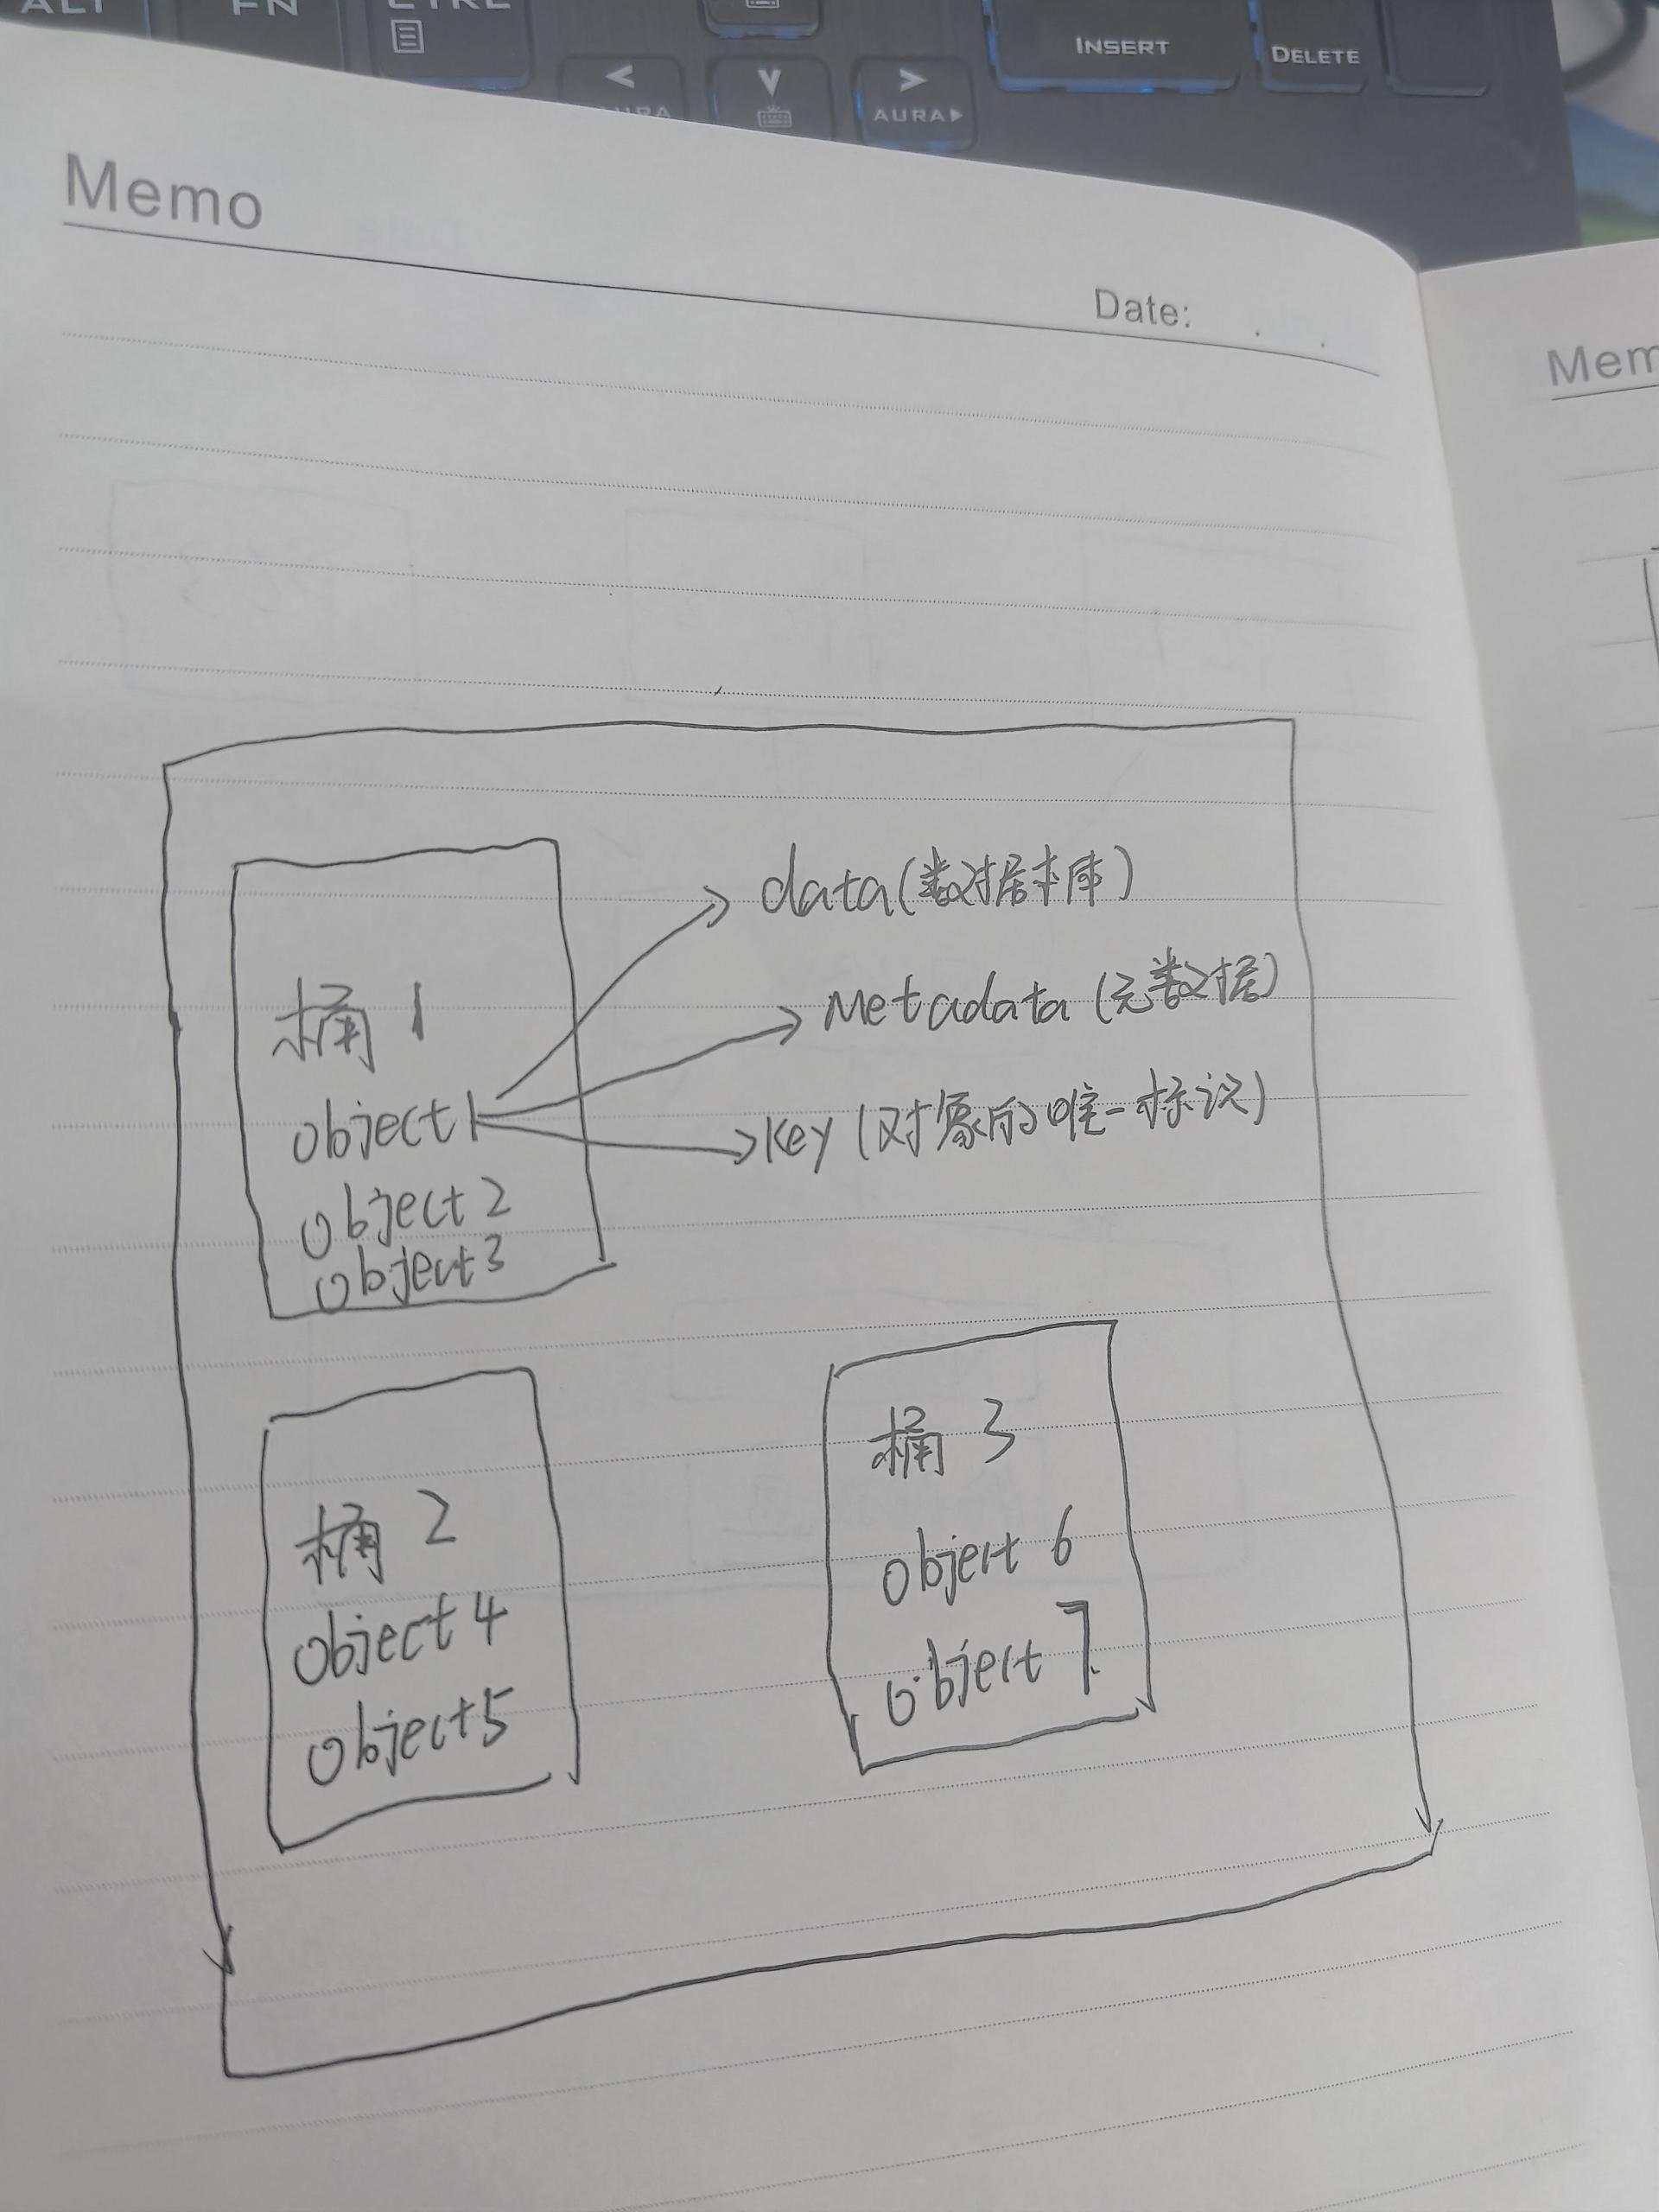 ALT
FN
CTRL
INSERT
DELETE
AURA
AURA
Memo
Date:
Mem
桶 1
object1
object 2
object3
data(数据本库)
Metadata (元数据)
Key (对象的唯一标识)
桶 2
object 4
object5
桶 3
object 6
object 7